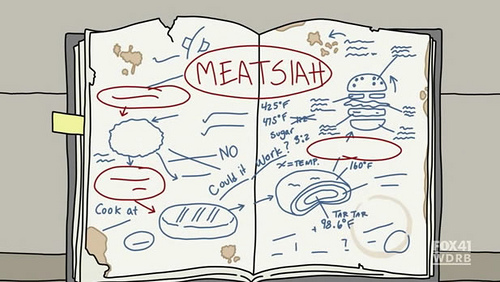 MEATSIAH
425°F
475°F
Sugar
3:2
NO
Could it work?
X=TEMP.
160°F
Cook at
TAR TAR
98.6°F
?
FOX41
WDRB